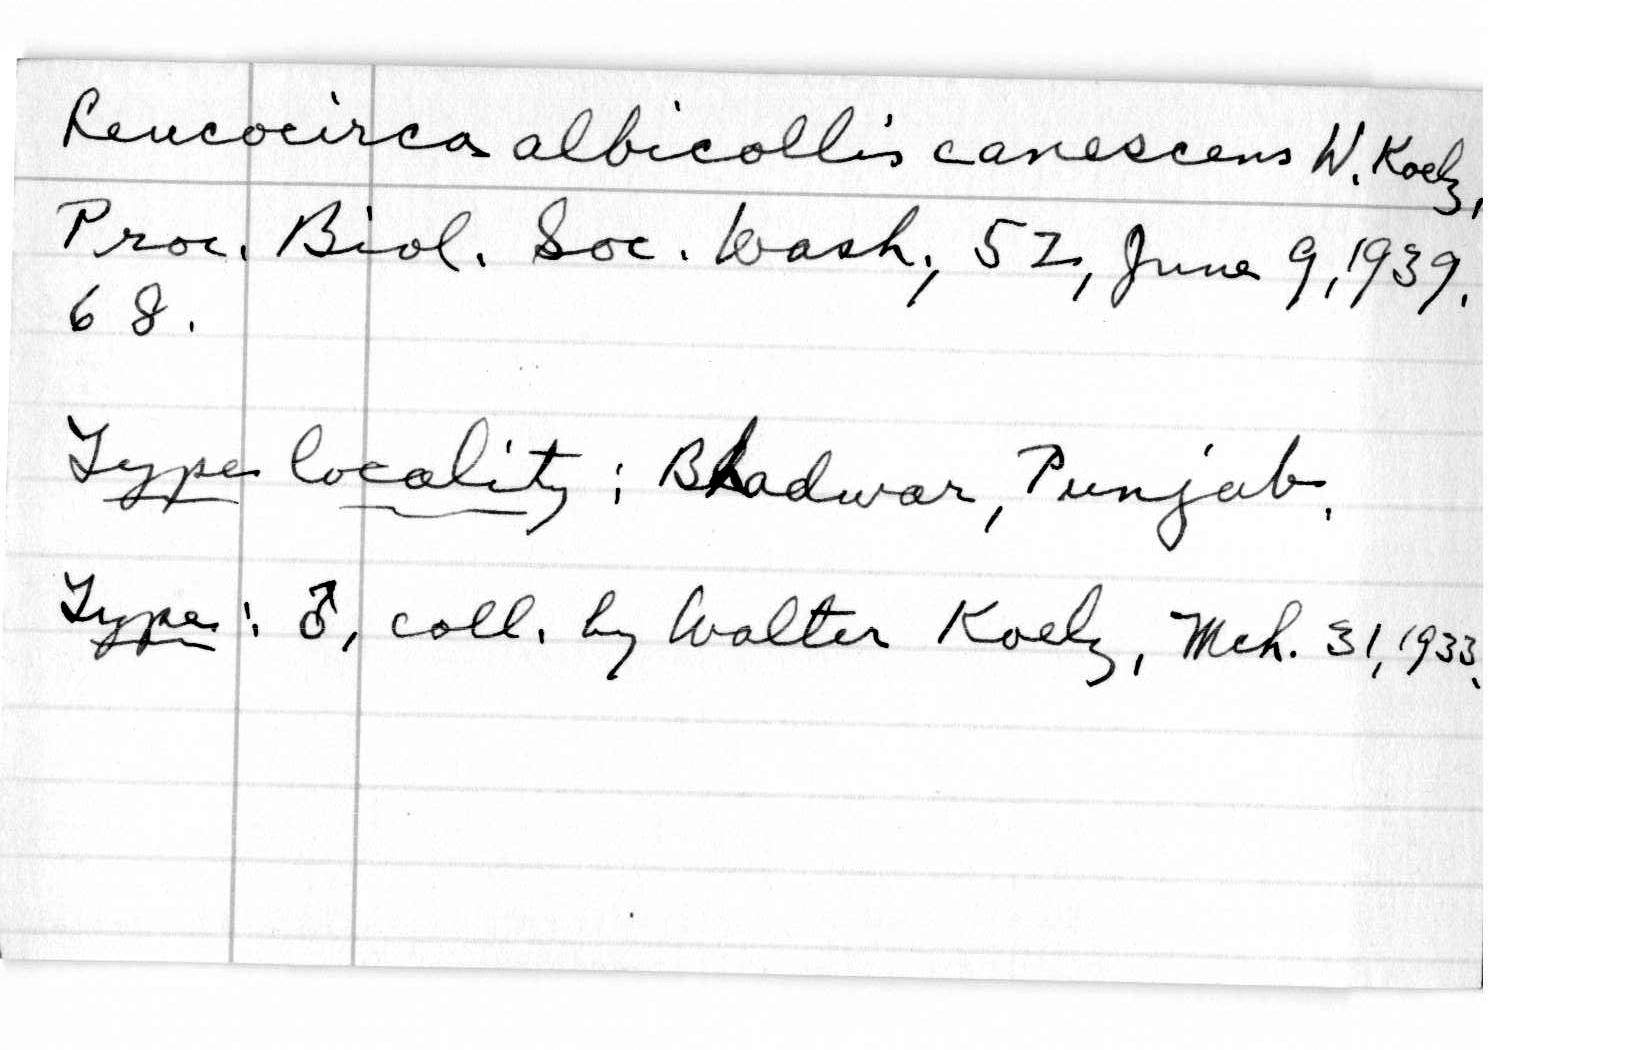 Leucocirca albicollis canescens W. Koelz,
Proc. Biol. Soc. Wash., 52, June 9, 1939.
68.
Type locality: Bhadwar, Punjab.
Type: ♂, coll. by Walter Koelz, Mch. 31, 1933.